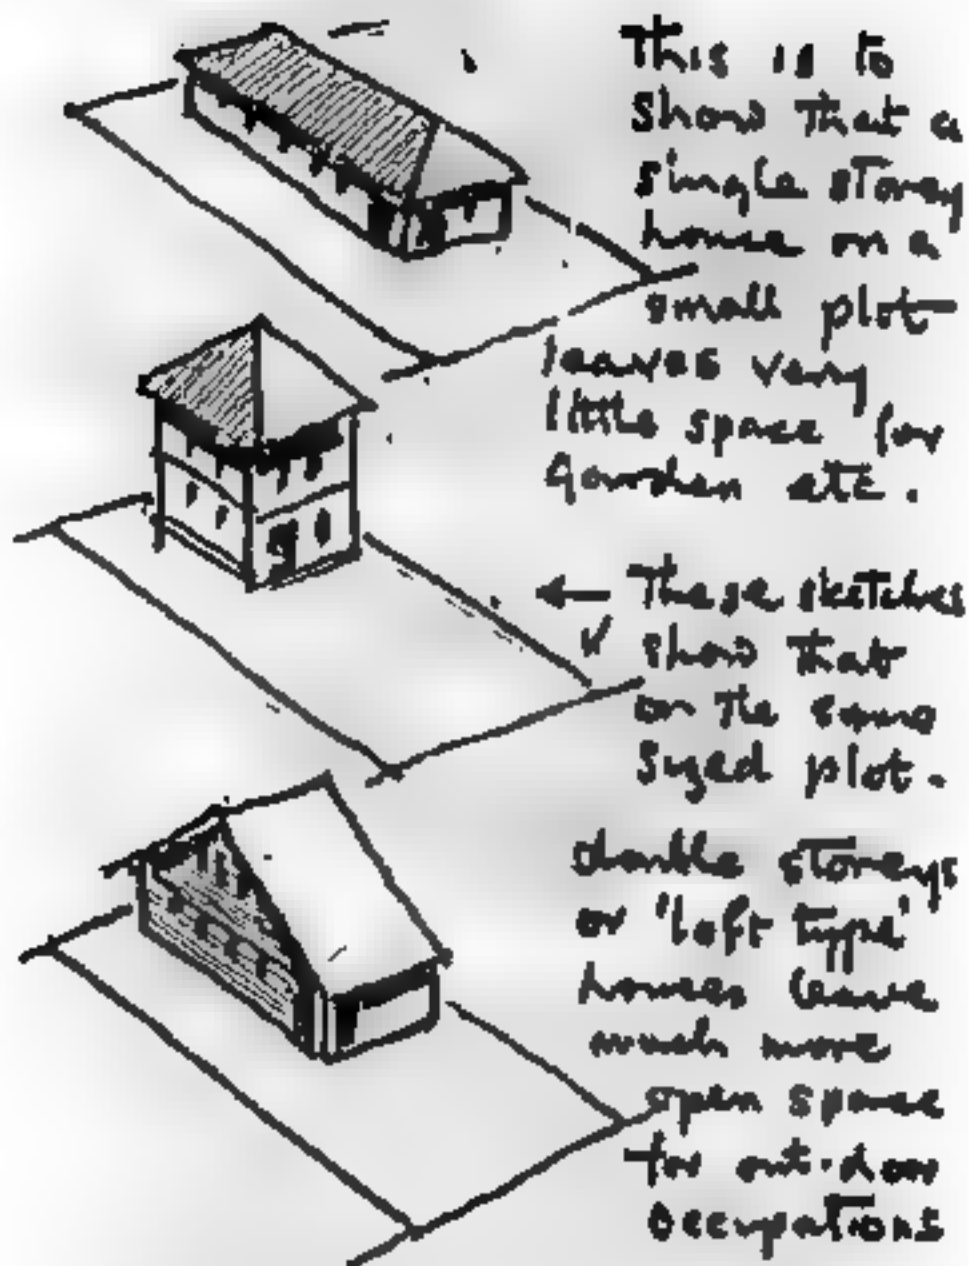 This is to
show that a
single storey
house on a
small plot
leaves very
little space for
garden etc.
These sketches
show that
on the same
sized plot.
double storeys
or 'loft type'
houses leave
much more
open space
for out-door
occupations